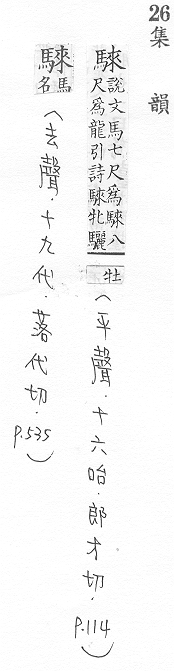 26
集韻
騋說文馬七尺為騋八尺為龍引詩騋牝驪牡（平聲．十六咍．郎才切．P.114）
騋馬名（去聲．十九代．落代切．P.535）